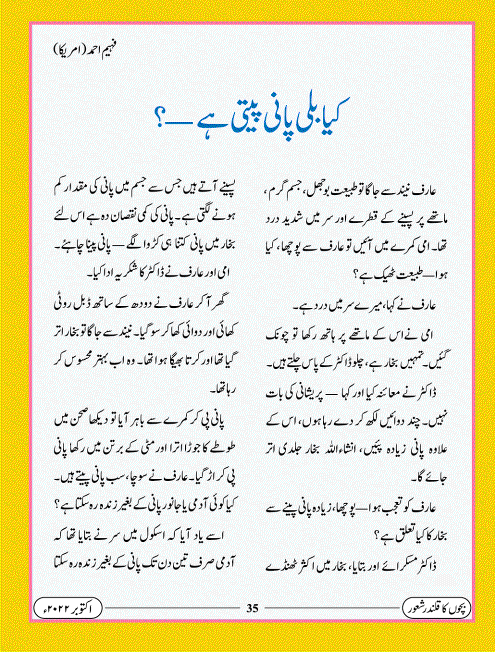 فہیم احمد (امریکا)
کیا بلی پانی پیتی ہے—؟
عارف نیند سے جاگا تو طبیعت بوجھل، جسم گرم،
ماتھے پر پسینے کے قطرے اور سر میں شدید درد
تھا۔ امی کمرے میں آئیں تو عارف سے پوچھا، کیا
ہوا—طبیعت ٹھیک ہے؟
عارف نے کہا، میرے سر میں درد ہے۔
امی نے اس کے ماتھے پر ہاتھ رکھا تو چونک
گئیں۔ تمہیں بخار ہے، چلو ڈاکٹر کے پاس چلتے ہیں۔
ڈاکٹر نے معائنہ کیا اور کہا — پریشانی کی بات
نہیں۔ چند دوائیں لکھ کر دے رہا ہوں، اس کے
علاوہ پانی زیادہ پئیں، انشاءاللہ بخار جلدی اتر
جائے گا۔
عارف کو تعجب ہوا—پوچھا، زیادہ پانی پینے سے
بخار کا کیا تعلق ہے؟
ڈاکٹر مسکرائے اور بتایا، بخار میں اکثر ٹھنڈے
پسینے آتے ہیں جس سے جسم میں پانی کی مقدار کم
ہونے لگتی ہے۔ پانی کی کمی نقصان دہ ہے اس لئے
بخار میں پانی کتنا ہی کڑوا لگے — پانی پینا چاہئے۔
امی اور عارف نے ڈاکٹر کا شکریہ ادا کیا۔
گھر آکر عارف نے دودھ کے ساتھ ڈبل روٹی
کھائی اور دوائی کھا کر سو گیا۔ نیند سے جاگا تو بخار اتر
گیا تھا اور کرتا بھیگا ہوا تھا۔ وہ اب بہتر محسوس کر
رہا تھا۔
پانی پی کر کمرے سے باہر آیا تو دیکھا صحن میں
طوطے کا جوڑا اترا اور مٹی کے برتن میں رکھا پانی
پی کر اڑ گیا۔ عارف نے سوچا، سب پانی پیتے ہیں۔
کیا کوئی آدمی یا جانور پانی کے بغیر زندہ رہ سکتا ہے؟
اسے یاد آیا کہ اسکول میں سر نے بتایا تھا کہ
آدمی صرف تین دن تک پانی کے بغیر زندہ رہ سکتا
بچوں کا قلندر شعور
35
اکتوبر ۲۰۲۲ء